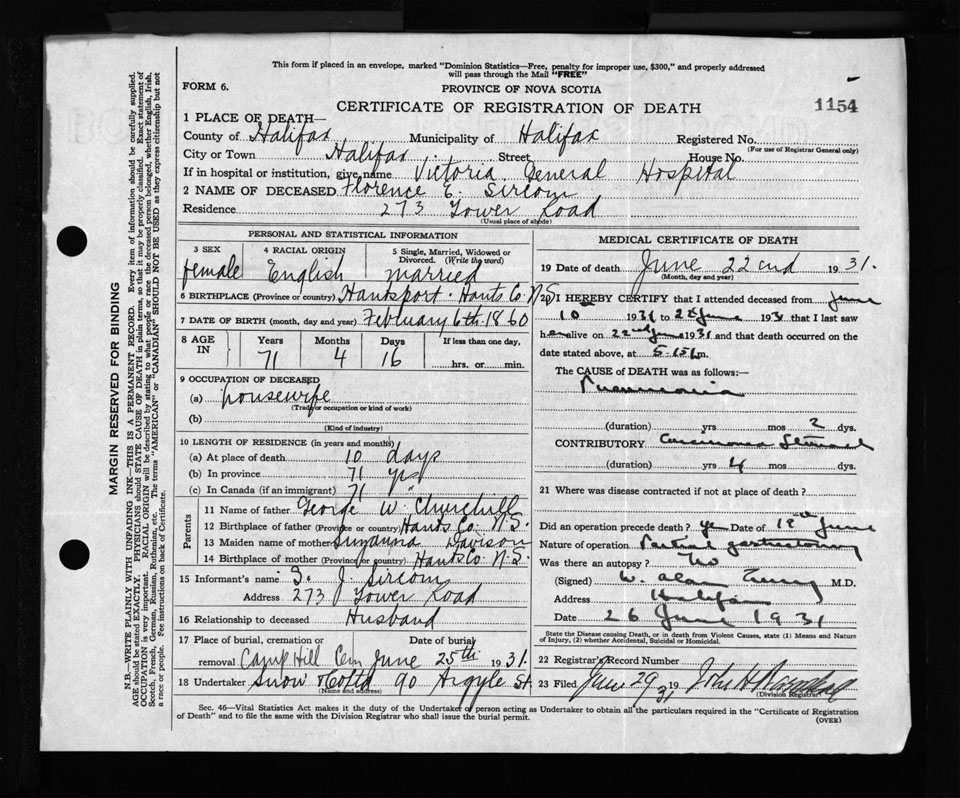 This form if placed in an envelope, marked "Dominion Statistics—Free, penalty for improper use, $300," and properly addressed
will pass through the Mail "FREE"
FORM 6.
PROVINCE OF NOVA SCOTIA
1154
CERTIFICATE OF REGISTRATION OF DEATH
1 PLACE OF DEATH—
County of Halifax Municipality of Halifax Registered No.
(For use of Registrar General only)
City or Town Halifax Street House No.
If in hospital or institution, give name Victoria General Hospital
2 NAME OF DECEASED Florence E. Sircom
Residence 273 Tower Road
(Usual place of abode)
PERSONAL AND STATISTICAL INFORMATION
3 SEX
female
4 RACIAL ORIGIN
English
5 Single, Married, Widowed or
Divorced. (Write the word)
married
6 BIRTHPLACE (Province or country) Hantsport. Hants Co. N.S.
7 DATE OF BIRTH (month, day and year) February 6th. 1860
8 AGE IN
Years Months Days If less than one day,
71 4 16 hrs. or min.
9 OCCUPATION OF DECEASED
(a) housewife
(Trade or occupation or kind of work)
(b)
(Kind of industry)
10 LENGTH OF RESIDENCE (in years and months)
(a) At place of death 10 days
(b) In province 71 yrs
(c) In Canada (if an immigrant) 71 "
Parents
11 Name of father George W. Churchill
12 Birthplace of father (Province or country) Hants Co. N.S.
13 Maiden name of mother Susanna Davison
14 Birthplace of mother (Province or country) Hants Co. N.S.
15 Informant's name S. J. Sircom
Address 273 Tower Road
16 Relationship to deceased Husband
17 Place of burial, cremation or Date of burial
removal Camp Hill Cem June 25th 1931.
18 Undertaker Snow & Co Ltd 90 Argyle St.
(Name and address)
MEDICAL CERTIFICATE OF DEATH
19 Date of death June 22nd 1931.
(Month, day and year)
20 I HEREBY CERTIFY that I attended deceased from June
10 1931 to 22 June 1931 that I last saw
her alive on 22nd June 1931 and that death occurred on the
date stated above, at 5.15 m.
The CAUSE of DEATH was as follows:—
Pneumonia
(duration) yrs mos 2 dys.
CONTRIBUTORY Carcinoma Stomach
(duration) yrs 4 mos dys.
21 Where was disease contracted if not at place of death?
Did an operation precede death? yes Date of 18th June
Nature of operation Partial gastrectomy
Was there an autopsy? No
(Signed) W. Alan Curry M.D.
Address Halifax
Date 26 June 1931
State the Disease causing Death, or in death from Violent Causes, state (1) Means and Nature
of Injury, (2) whether Accidental, Suicidal or Homicidal.
22 Registrar's Record Number
23 Filed June 29 31 19 John H
(Division Registrar)
Sec. 46—Vital Statistics Act makes it the duty of the Undertaker or person acting as Undertaker to obtain all the particulars required in the "Certificate of Registration
of Death" and to file the same with the Division Registrar who shall issue the burial permit.
(OVER)
MARGIN RESERVED FOR BINDING
N.B.—WRITE PLAINLY WITH UNFADING INK—THIS IS A PERMANENT RECORD. Every item of information should be carefully supplied.
AGE should be stated EXACTLY. PHYSICIANS should STATE CAUSE OF DEATH in plain terms, so that it may be properly classified. Exact statement of
OCCUPATION is very important. RACIAL ORIGIN will be described by stating to what people or race the deceased person belonged, whether English, Irish,
Scotch, French, German, Russian, Ruthenian, etc. The terms "AMERICAN" or "CANADIAN" SHOULD NOT BE USED as they express citizenship but not
a race or people. Fee instructions on back of Certificate.